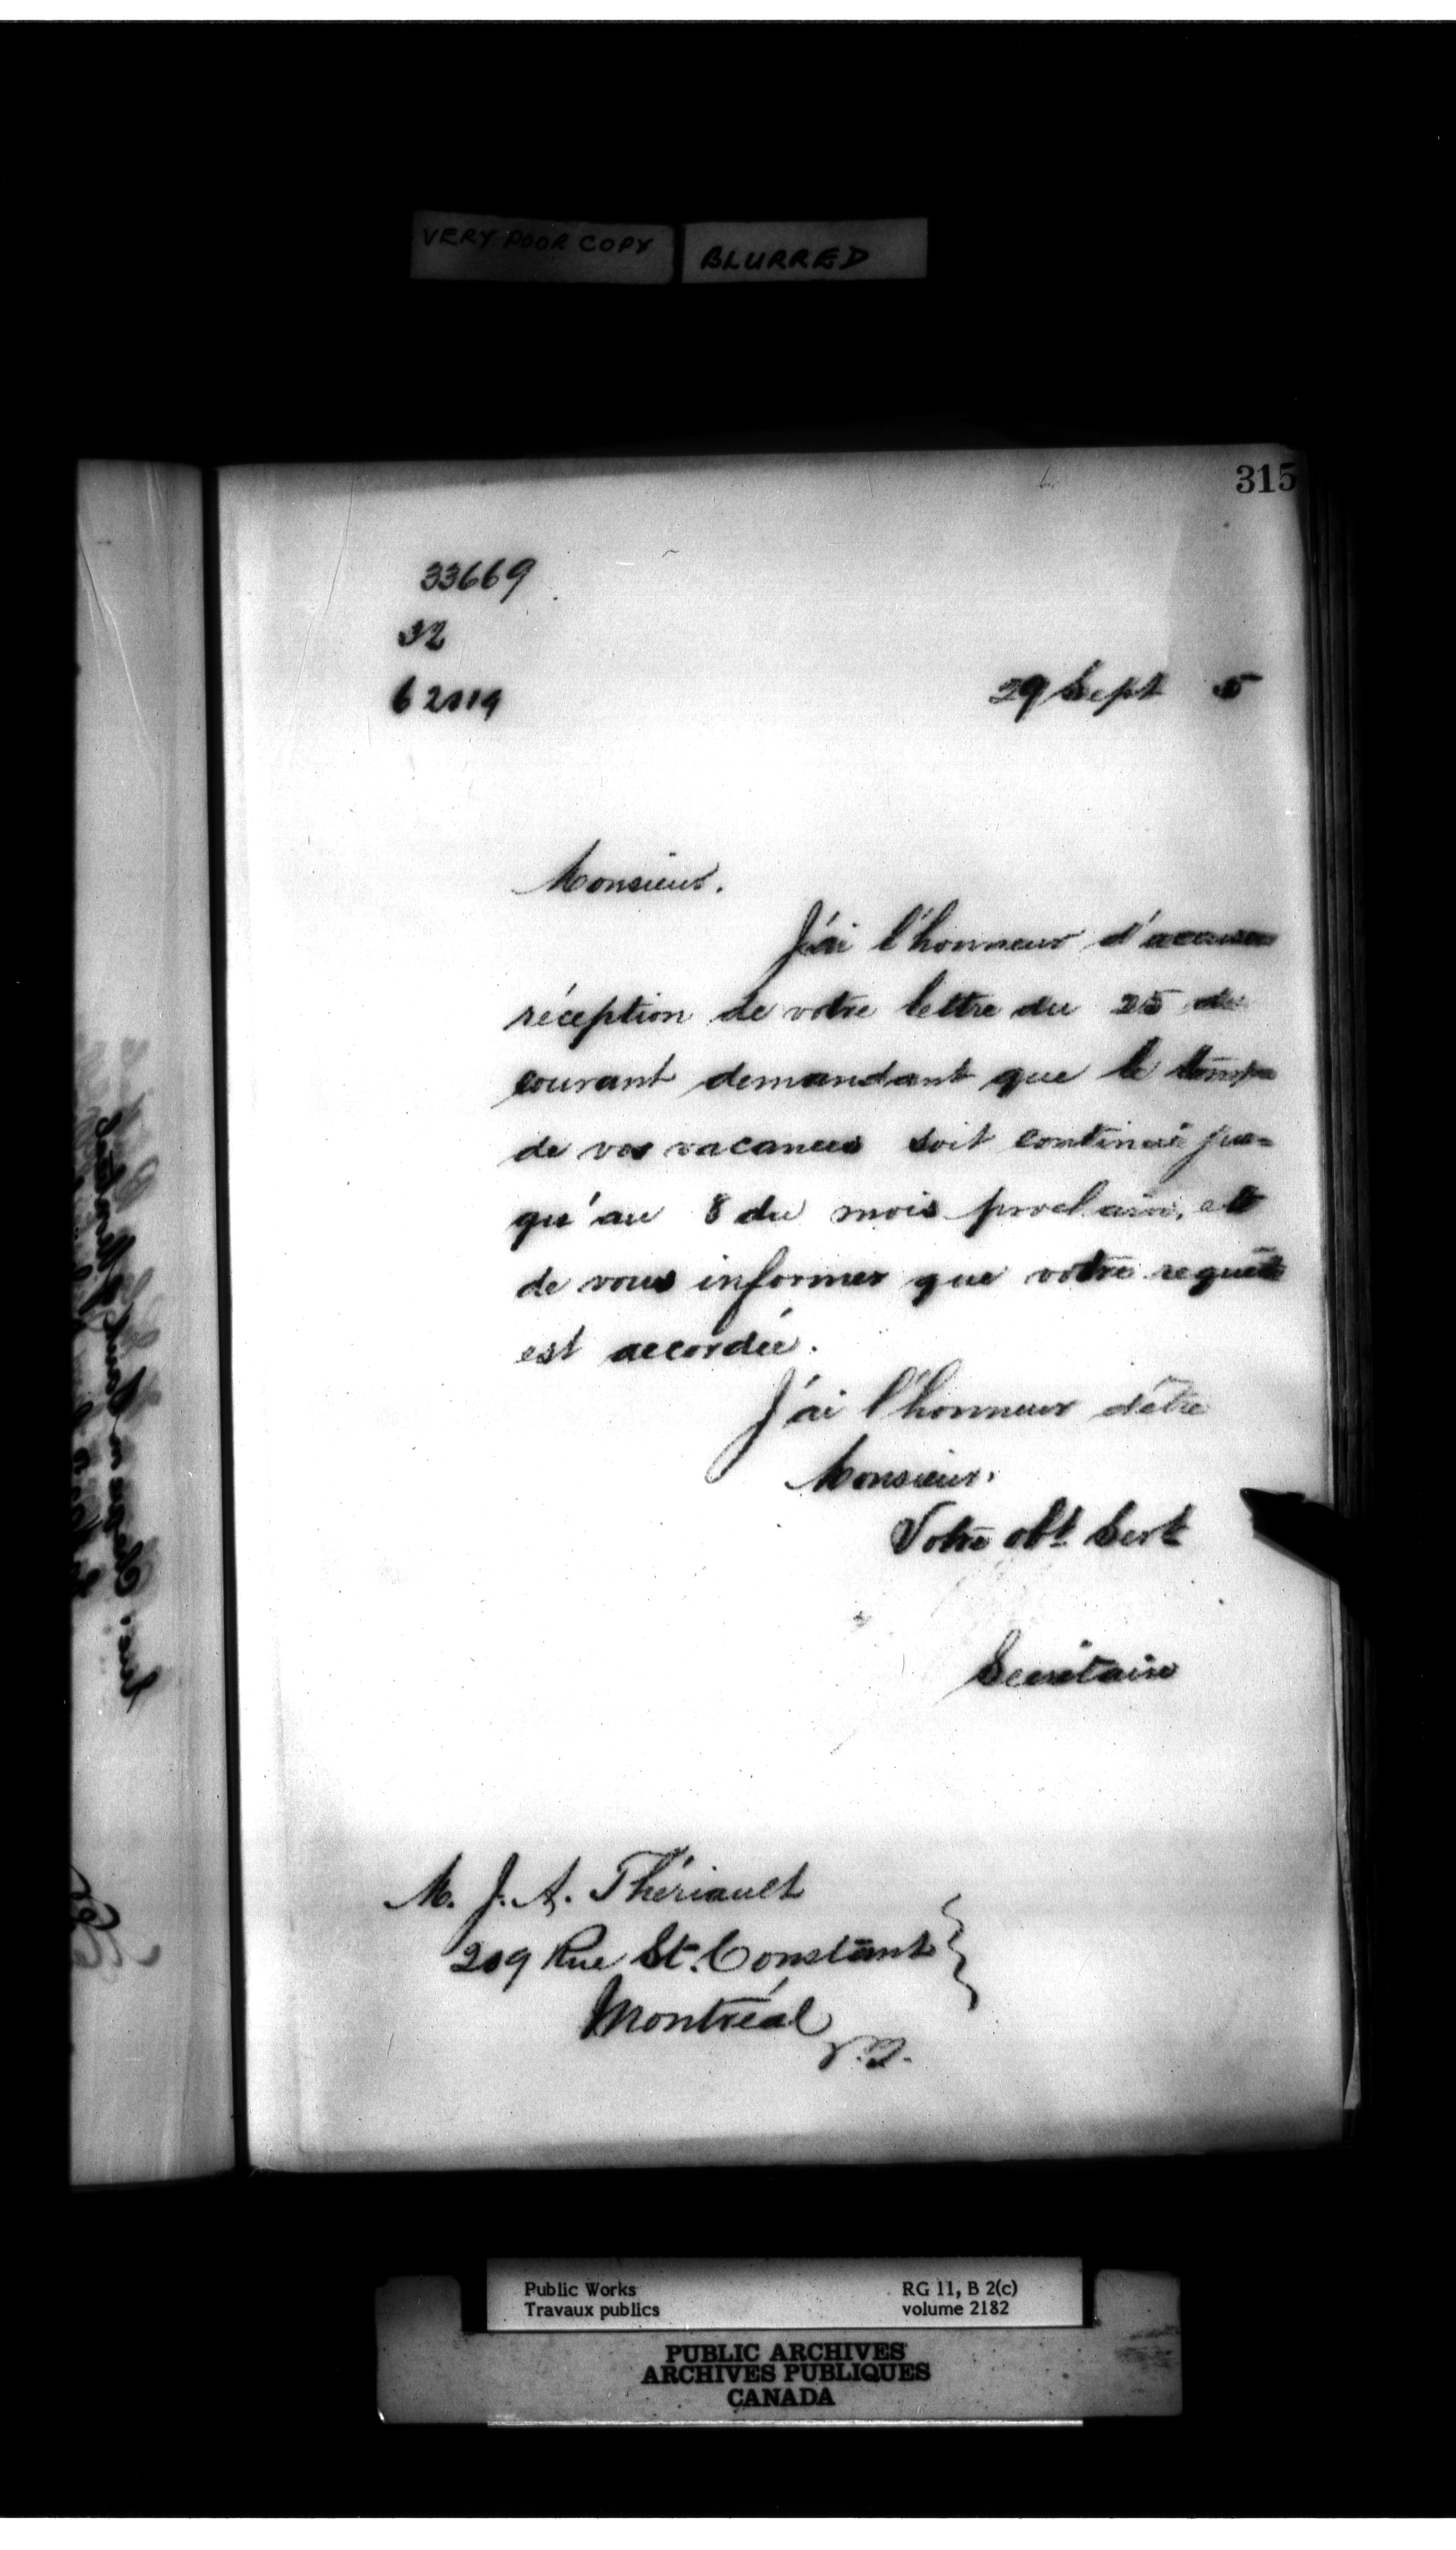 VERY POOR COPY BLURRED
315
33669
32
29 Sept 5
Monsieur.
J'ai l'honneur d'accuser
réception de votre lettre du 25 du
courant demandant que le temps
de vos vacances soit continué jus-
qu'au 8 du mois prochain, et
de vous informer que votre requête
est accordée.
J'ai l'honneur d'être
Monsieur,
Votre obt. Sert
Secrétaire
M. J. A. Thériault
209 Rue St. Constant
Montréal
P.Q.
Public Works RG 11, B 2(c)
Travaux publics volume 2182
PUBLIC ARCHIVES
ARCHIVES PUBLIQUES
CANADA